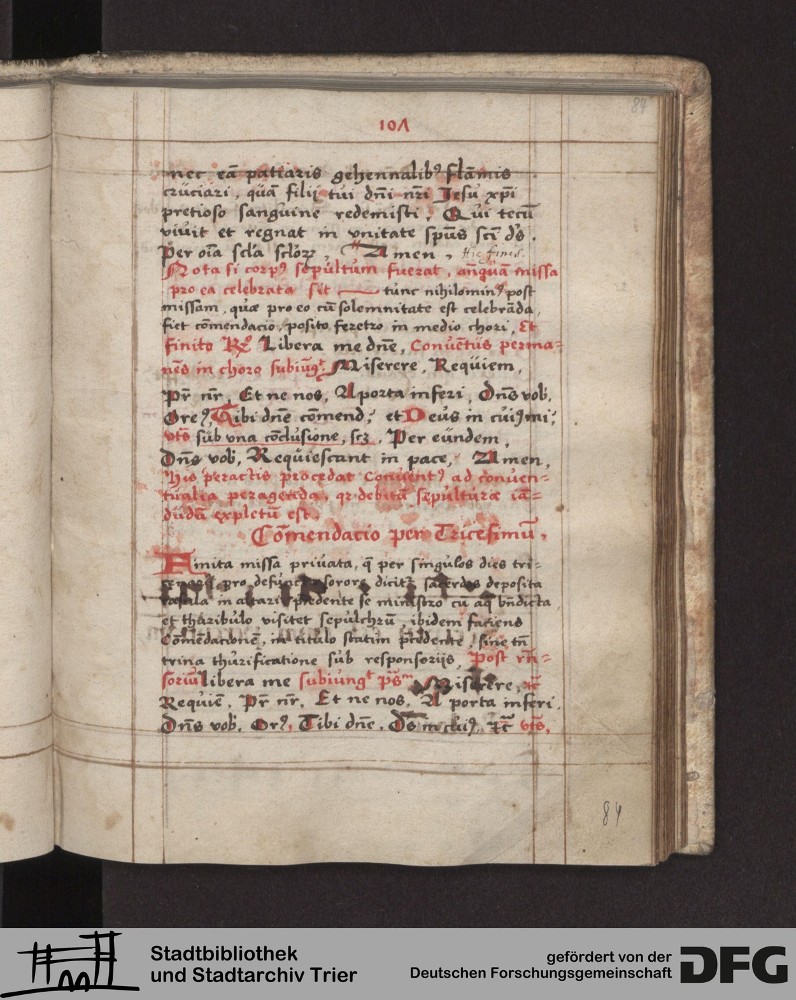 84
10Λ
nec eā patiaris gehennalibꝰ flāmis
crūciari, quā filij tui dn̄i nr̄i Jesu xp̄i
pretioso sanguine redemisti, Qui tecū
viuit et regnat in vnitate spūs sc̄i ds̄.
Per oīa scl̄a scl̄oꝝ, Amen, Hic finis.
Nota si corpꝰ sepultum fuerat, anq̄uā missa
pro ea celebrata sit tunc nihilominꝰ post
missam, quæ pro eo cū solemnitate est celebrāda,
fiet cōmendacio, posito feretro in medio chori, Et
finito Libera me dn̄e, Conuentus perma-
nēs in choro Miserere, Requiem,
Pr̄ nr̄, Et ne nos, A porta inferi, Dn̄s vob,
Tibi dn̄e cōmend; et Deus in
vts sub vna cōclusione, Per eundem,
Dn̄s vob, Requiescant in pace, Amen,
His peractis procedat Conuentꝰ ad conuen-
tualia peragenda, debitā sepulturæ iā-
dudū expletū est.
Cōmendacio per Tricesimū,
Finita missa priuata, q̄ per singulos dies tri-
pro sorore sacerdos deposita
casula in altari, p̄cedente se ministro cū aq̄ bn̄dicta
et tharibulo visitet sepulchrū, ibidem faciens
Cōmēdacionē, in titulo statim p̄cedente, sine tn̄
trina thurificatione sub responsorijs, Post rn̄-
soriū Libera me Miserere,
Requiē, Pr̄ nr̄, Et ne nos, A porta inferi,
Dn̄s vob, Tibi dn̄e, Ds̄ vts,
84
Stadtbibliothek
und Stadtarchiv Trier
gefördert von der
Deutschen Forschungsgemeinschaft
DFG